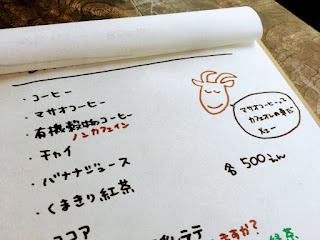 ・コーヒー
・マサオコーヒー
・有機穀物コーヒー
ノンカフェイン
・チャイ
・バナナジュース
・くまきり紅茶
マサオコーヒーって
カフェオレの事だ
メェー
各500えん
ココア
ラテ
ますか?
緑茶